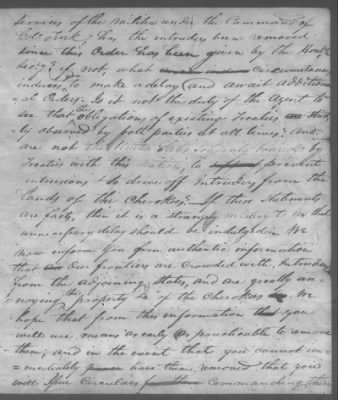 services of the Militia under the Command of
Col. has the intruders been removed
since this Order has been given by the Honl.
Secy? if not, what circumstances
induces to make a delay (and await addition
al Orders. Is it not the duty of the Agent to
see that the obligations of existing Treaties are strict
ly observed by both parties at all times? And
are not the United States by
Treaties with this Nation, to prevent
intrusions & to drive off Intruders from the
Lands of the Cherokees? If these Statements
are facts, then it is a strange to us that
unnecessary delay should be indulged in We
now inform You from authentic information
that Our frontiers are Crowded with Intruders
from the adjoining States, and are greatly an-
noying the property &c of the Cherokees We
hope that from this information you
will use means as early as practicable to remove
them, and in the event that you cannot im
=mediately have them removed that you
will Circulars commanding them